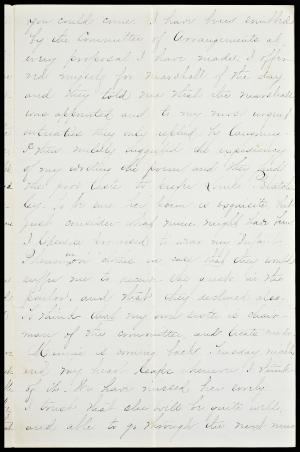 you could come. I have been snubbed
by the Committee of Arrangements at
every proposal I have made. I offer-
ed myself for marshall of the day
and they told me that the marshall
was appointed and to my most urgent
they only replied
I then meekly suggested the expediency
of my writing the poem and they had
the poor taste to prefer
To be sure her poem is exquisite but
just consider what mine might have been
I then to wear my Infant
in case that they would
suffer me to receive the guests in the
parlor, and that they declined also.
I think that my own is chair-
man of the committee and
Minnie is coming back Tuesday night
and my heart leaps whenever I think
of it. We have missed her sorely
I trust that she will be quite well,
and able to go through the next